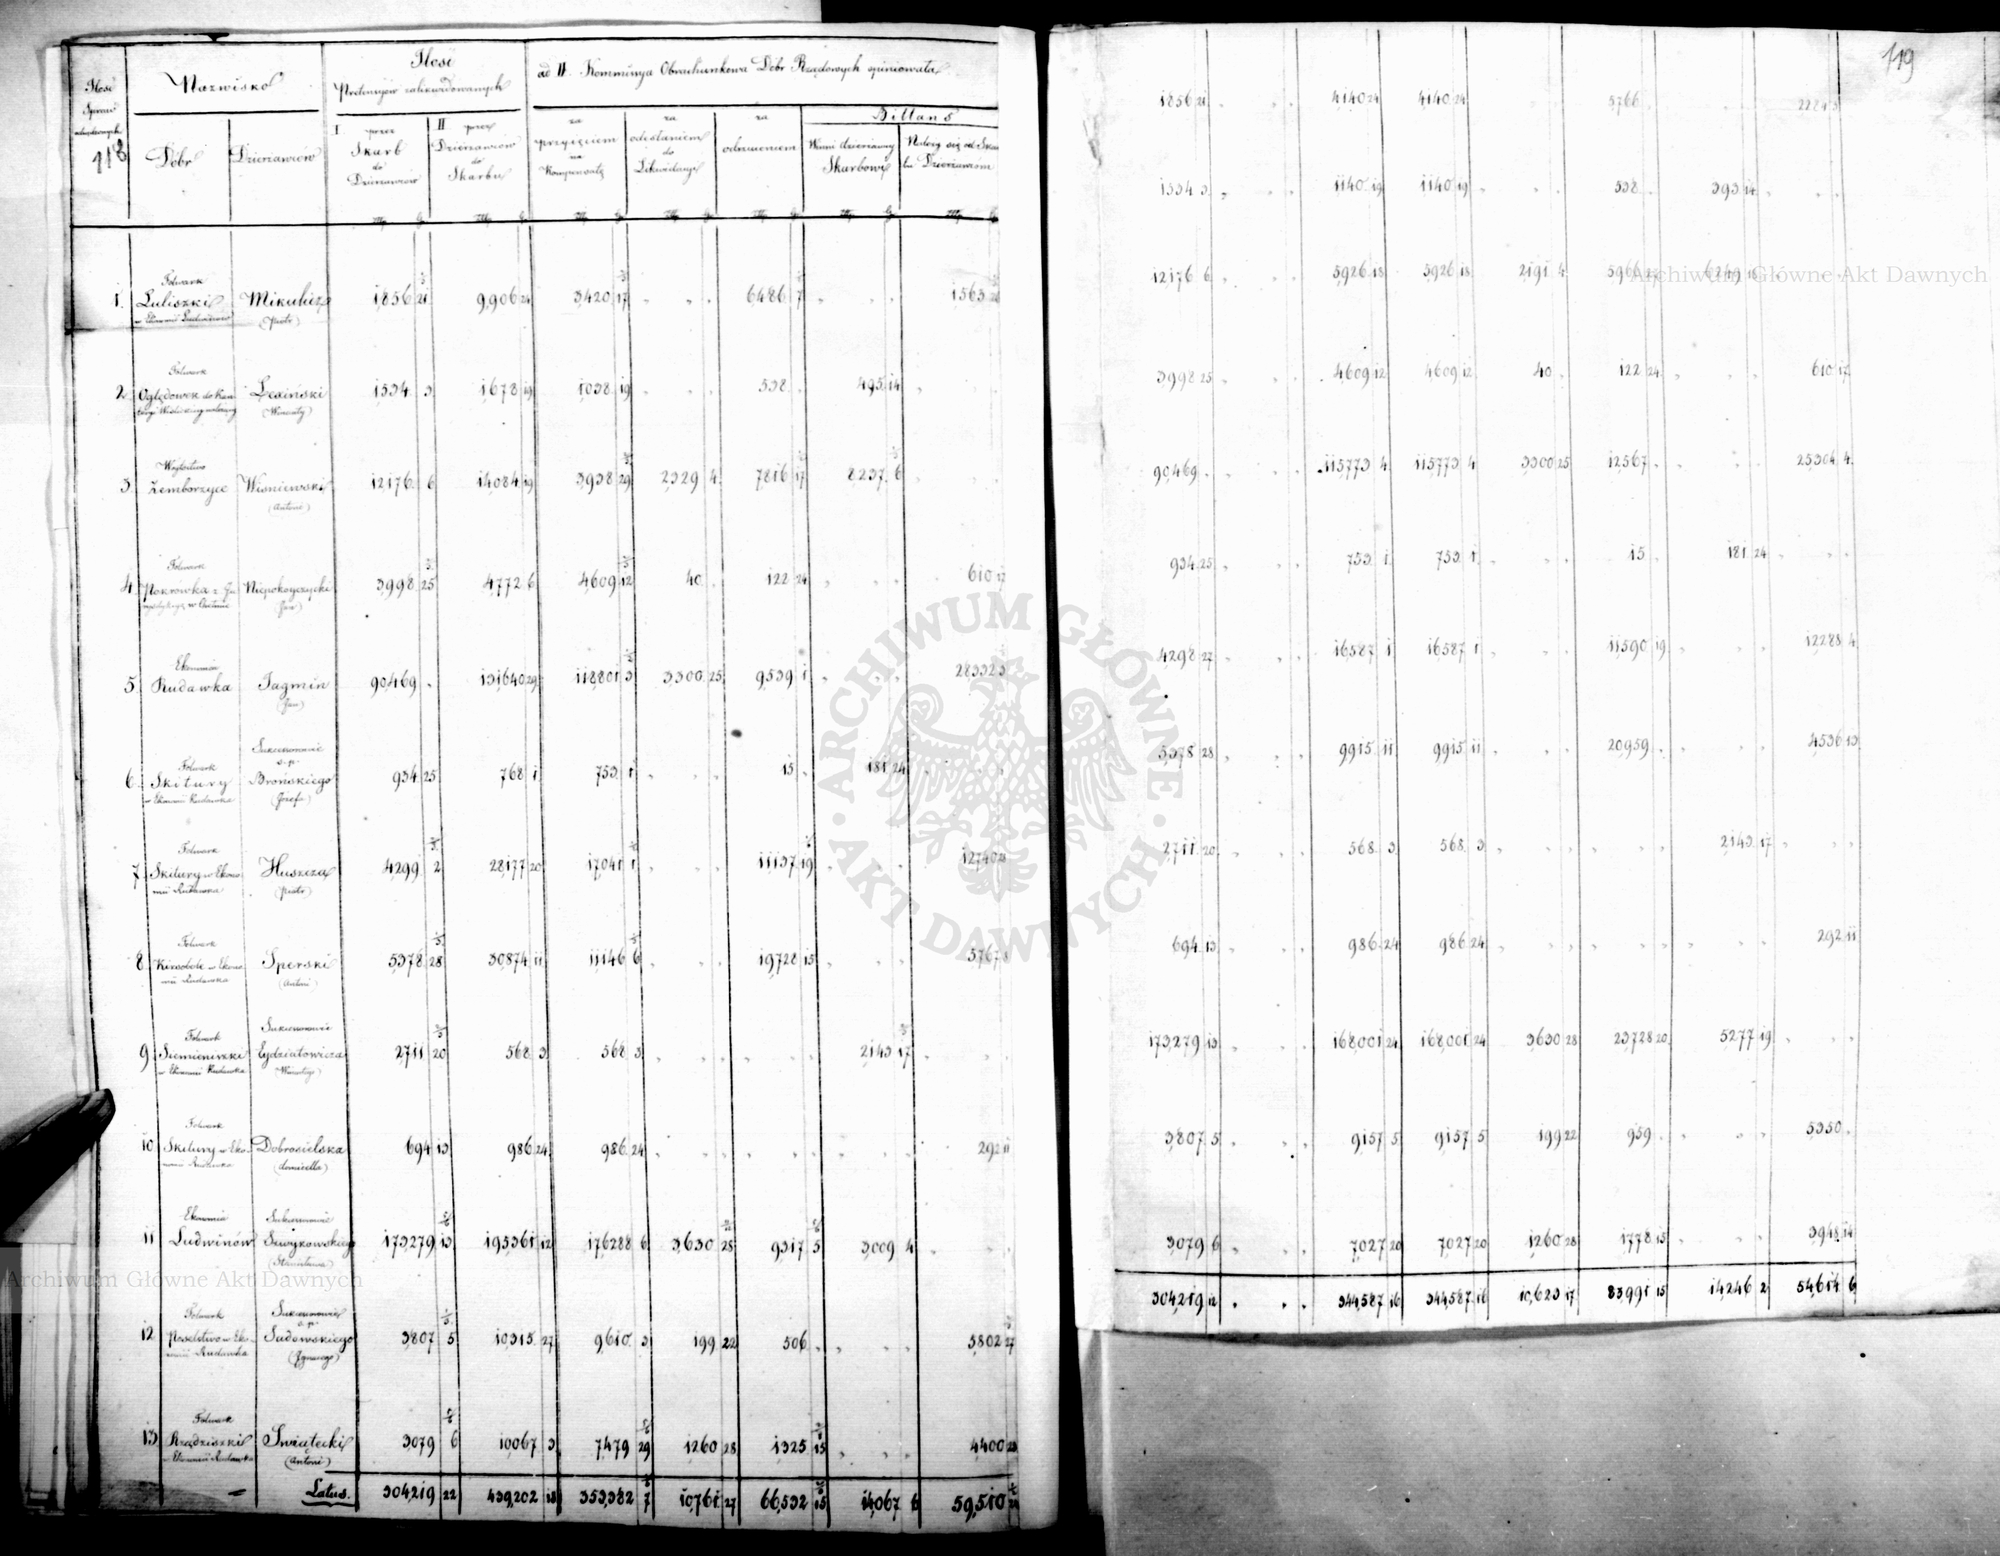 119
Ilość
Spraw
118
Nazwisko
Dóbr
Dzierzawców
Ilość
Pretensyów zalikwidowanych
I przez Skarb do Dzierzawców
II przez Dzierzawców do Skarbu
ad II. Kommissya Obrachunkowa Dóbr Rządowych opiniowała
za przyięciem na Kompensatę
za odesłaniem do Likwidacyi
za odrzuceniem
Billans
Winni dzierzawcy Skarbowi
Należy się od Skarbu Dzierzawcom
1. Folwark Luliszki Mikulicz (Piotr) 1856 21 9906 24 3420 17 6486 7 1563 26
2. Ogłędowek Łeziński (Wincenty) 1534 3 1678 19 1038 19 538 495 14
3. Wójtostwo Zemborzyce Wiśniewski (Antoni) 12176 6 14084 19 3938 29 2329 4 7816 17 8237 6
4. Folwark Pokrowka Niepokoyczycki (Jan) 3998 25 4772 6 4609 12 40 122 24 610 17
5. Ekonomia Rudawka Jagmin (Jan) 90,469 131,640 29 118,801 3 3300 25 9,539 1 28332 3
6. Folwark Skitury w Ekonomii Rudawka Sukcessorowie s.p. Brońskiego (Józefa) 934 25 768 1 753 1 15 181 24
7. Folwark Skitury w Ekonomii Rudawka Huszcza (Piotr) 4299 2 28,177 20 17,041 1 11137 19 12740
8. Folwark w Ekonomii Rudawka Sperski (Antoni) 5378 28 30874 11 11,146 6 19,728 15 5767 8
9. Folwark w Ekonomii Rudawka Sukcessorowie Eydziatowicza (Wincentego) 2711 20 568 3 568 3 2143 17
10 Folwark Skitury w Ekonomii Rudawka Dobrosielska (Domicella) 694 13 986 24 986 24 292 11
11 Ekonomia Ludwinów Sukcessorowie (Stanisława) 173,279 13 193,361 12 176288 6 3,630 28 9317 5 3,009 4
12 Folwark Poselstwo w Ekonomii Rudawka Sukcessorowie s.p. Sadowskiego (Ignacego) 3807 5 10,315 27 9610 3 199 22 506 5,802 27
13 Folwark Rządziszki w Ekonomii Rudawka Swiątecki (Antoni) 3079 6 10067 3 7479 29 1260 28 1325 15 4400 23
Latus. 304,219 22 439,202 18 353,382 7 10,761 27 66,532 15 14,067 6 59,510
1856 21 4140 24 4140 24 5766 2284 3
1534 3 1140 19 1140 19 538 393 14
12176 6 5926 18 5926 18 2191 4 5966 27 6249 18
3998 25 4609 12 4609 12 40 122 24 610 17
90,469 115,773 4 115773 4 3300 25 12567 25304 4
934 25 753 1 753 1 15 181 24
4298 27 16587 1 16587 1 11,590 19 12288 4
5378 28 9915 11 9915 11 20,959 4536 13
2711 20 568 3 568 3 2143 17
694 13 986 24 986 24 292 11
173,279 13 168,001 24 168,001 24 3630 28 23728 20 5277 19
3807 5 9157 5 9157 5 199 22 959 5350
3,079 6 7,027 20 7,027 20 1,260 28 1778 15 3,948 14
304,219 12 344,587 16 344,587 16 10,623 17 83,991 15 14,246 2 54,614 6
Archiwum Główne Akt Dawnych
ARCHIWUM GŁÓWNE AKT DAWNYCH
Archiwum Główne Akt Dawnych